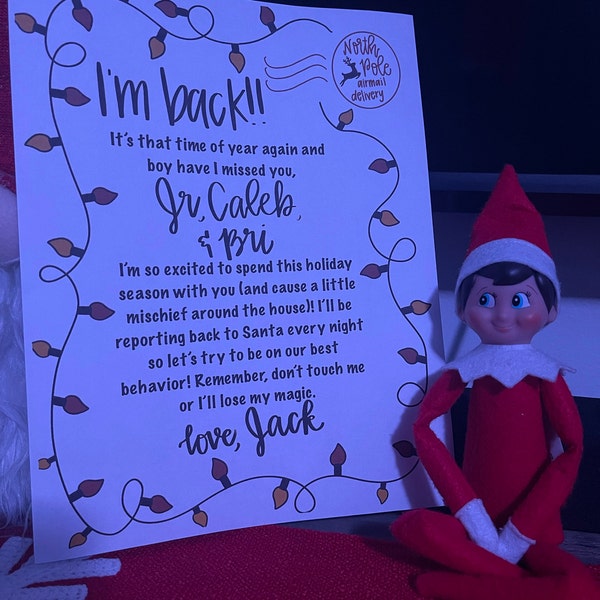 North
Pole
airmail
delivery
I'm back!!
It's that time of year again and
boy have I missed you,
Jr, Caleb,
& Bri
I'm so excited to spend this holiday
season with you (and cause a little
mischief around the house)! I'll be
reporting back to Santa every night
so let's try to be on our best
behavior! Remember, don't touch me
or I'll lose my magic.
love, Jack